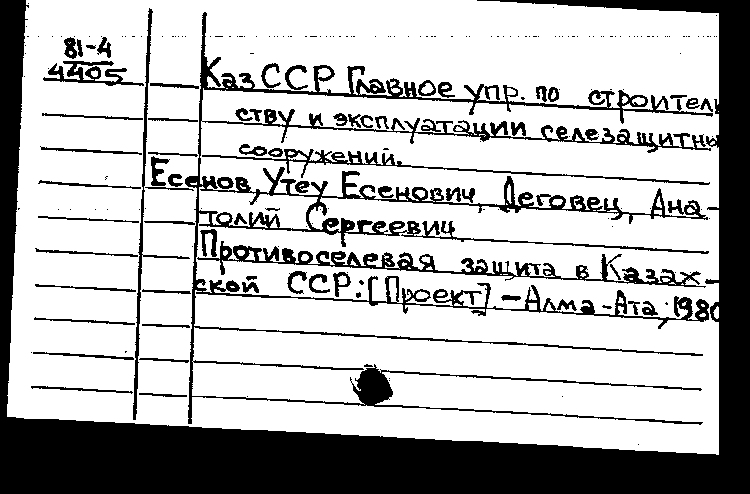 81-4
4405
КазССР. Главное упр. по строитель
ству и эксплуатации селезащитны
сооружений.
Есенов, Утеу Есенович, Деговец, Ана-
толий Сергеевич.
Противоселевая защита в Казах-
ской ССР: [Проект]. - Алма-Ата, 1980